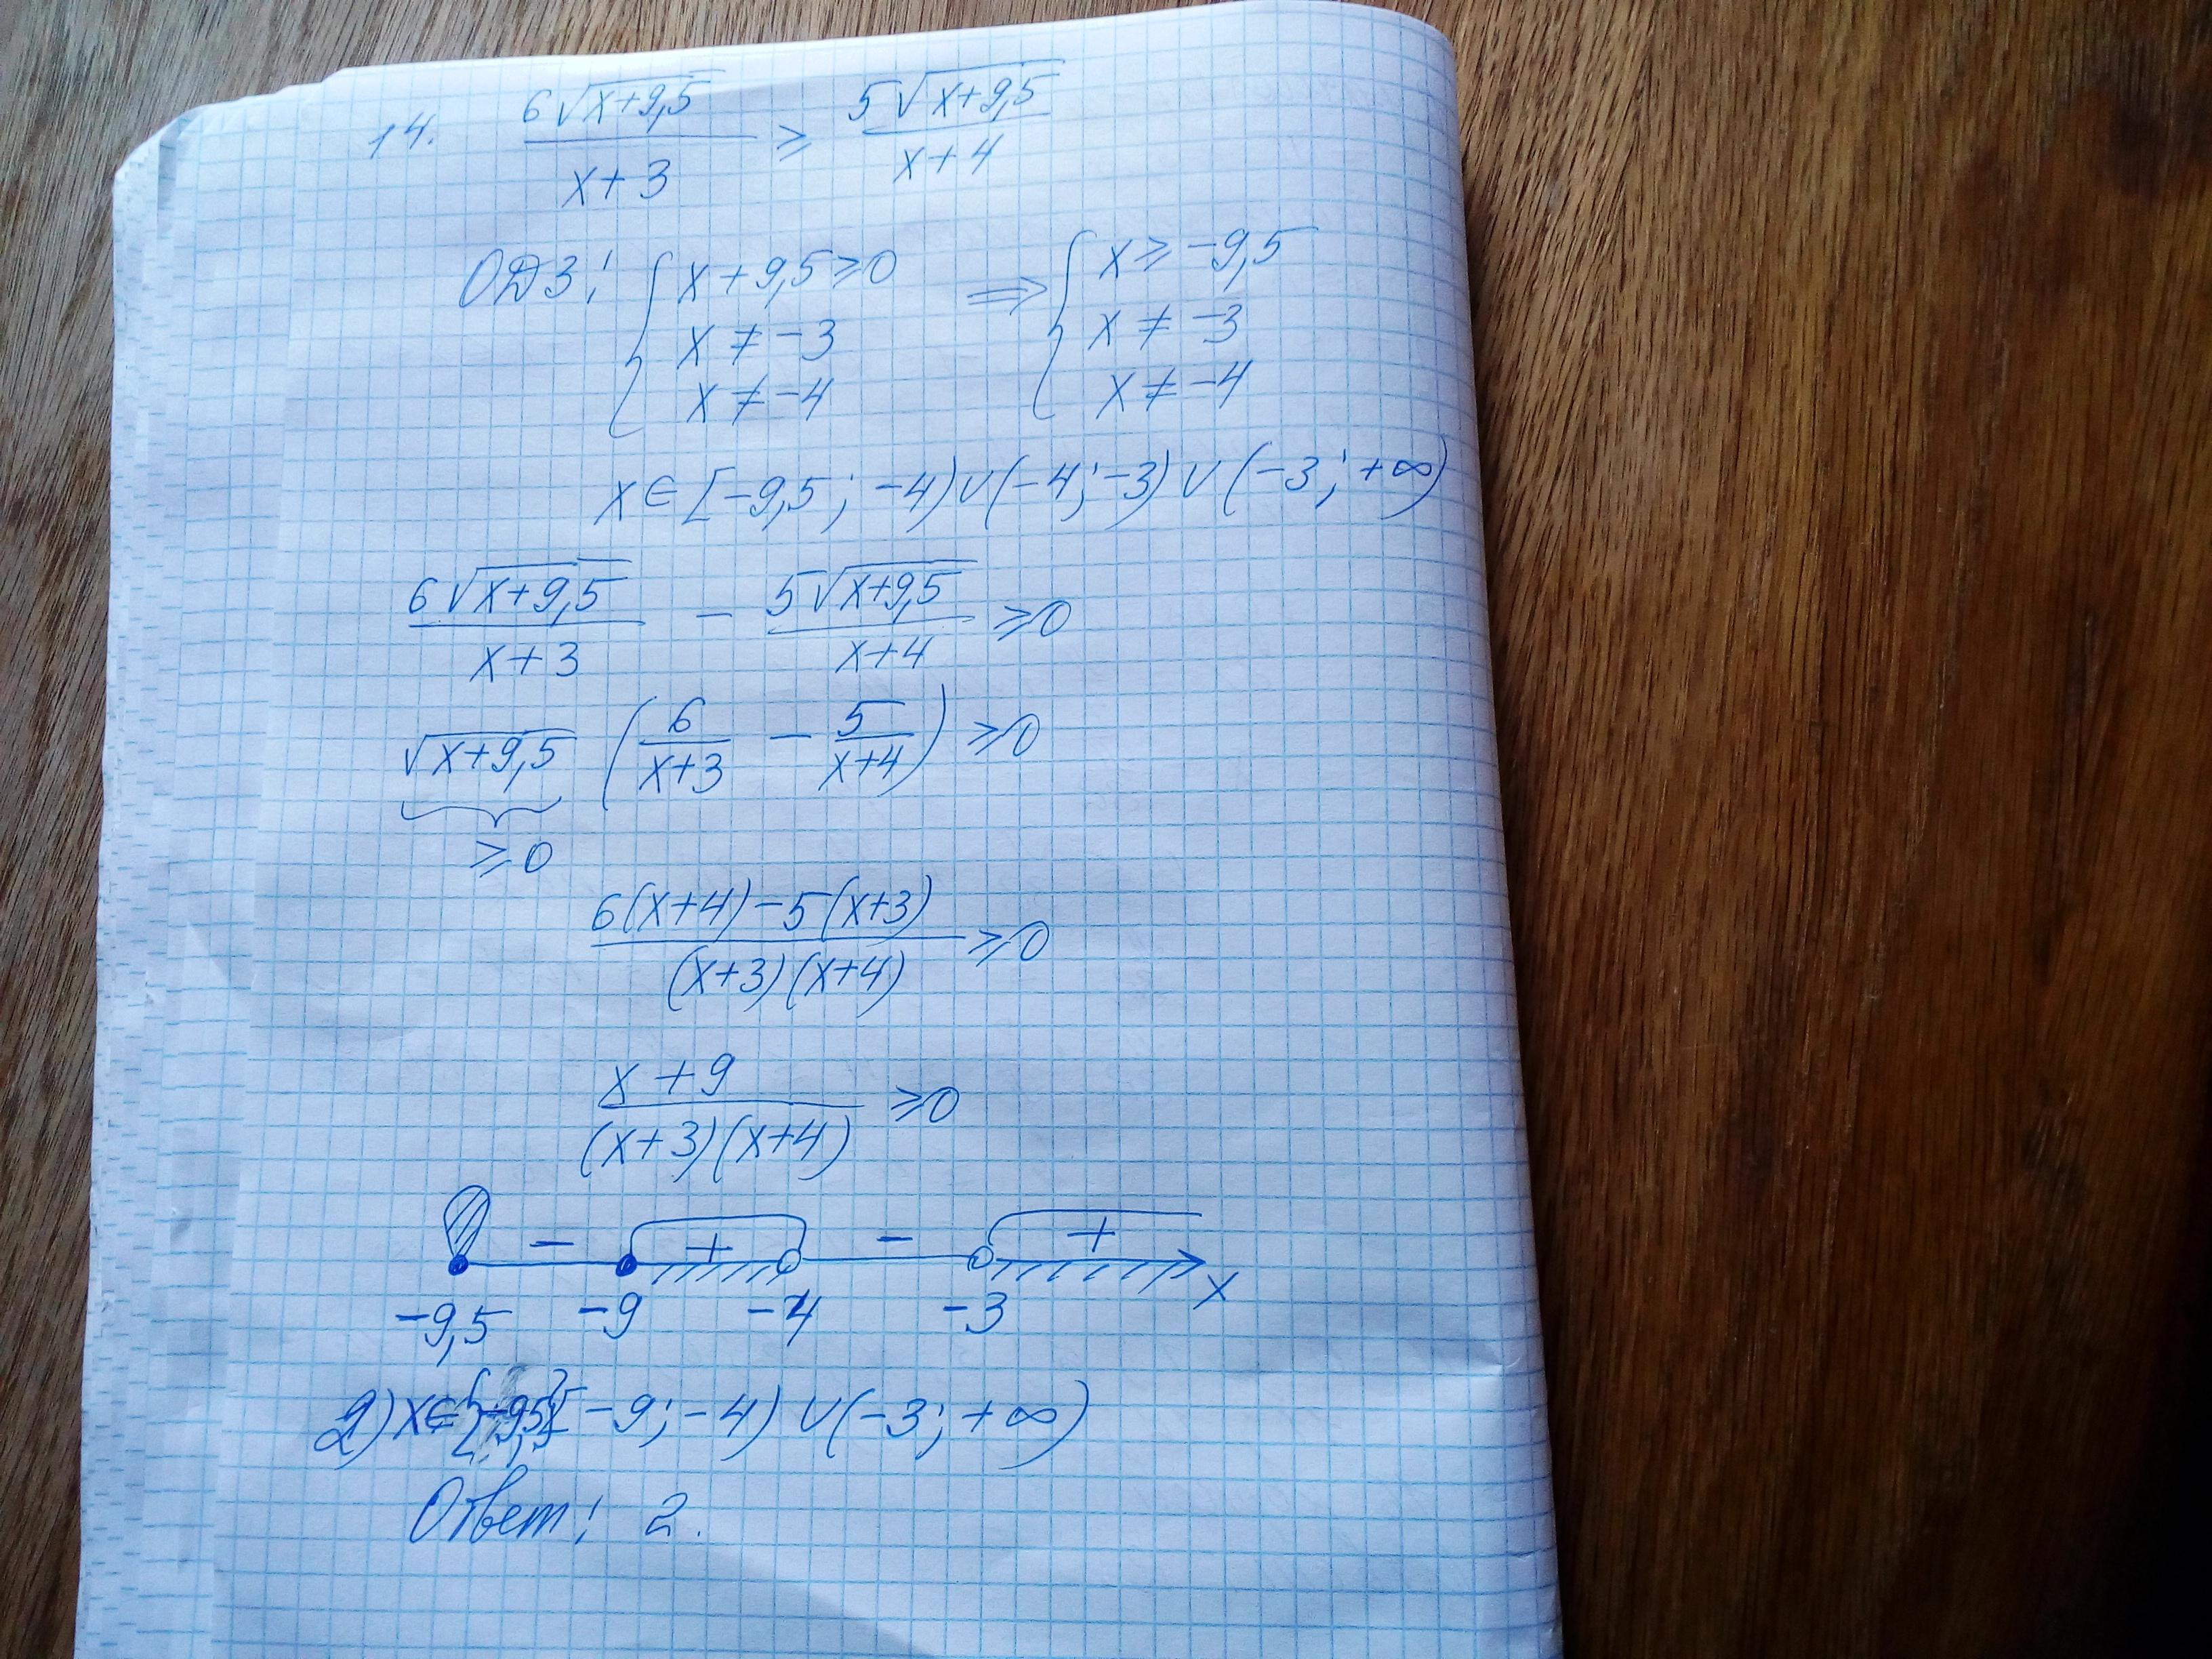 14. 6√(x+9,5) / (x+3) ≥ 5√(x+9,5) / (x+4)
ОДЗ: { x+9,5≥0 ; x≠-3 ; x≠-4 ⇒ { x≥-9,5 ; x≠-3 ; x≠-4
x∈[-9,5; -4)∪(-4;-3)∪(-3;+∞)
6√(x+9,5) / (x+3) - 5√(x+9,5) / (x+4) ≥0
√(x+9,5) (6/(x+3) - 5/(x+4)) ≥0
≥0
(6(x+4)-5(x+3)) / ((x+3)(x+4)) ≥0
(x+9) / ((x+3)(x+4)) ≥0
- + - +
-9,5 -9 -4 -3 x
2) x∈ -9;-4)∪(-3;+∞)
Ответ: 2.